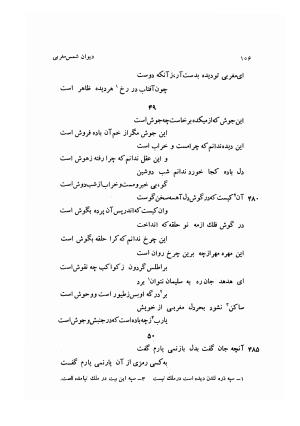 ۱۰۶ دیوان شمس مغربی
ای مغربی تو دیده بدست آر، ز آنکه دوست
چون آفتاب در رخ ۱ هر دیده ظاهر است
۴۹
این جوش که از میکده برخاست چه جوش است
این جوش مگر از خم آن باده فروش است
این دیده ندانم که چرا مست و خراب است
و این عقل ندانم که چرا رفته زهوش است
دل باده کجا خورد ندانم شب دوشین
گویی خبر و مست و خراب از شب دوش است
۴۸۰ آن کیست که در گوش دل آهسته سخن گوست
وان کیست که اندر پس آن پرده بگوش است
در گوش فلک از مه نو حلقه که انداخت
این چرخ ندانم که کرا حلقه بگوش است
این مهره مهر از چه برین چرخ روان است
بر اطلس گردون ز کواکب چه نقوش است
ای هدهد جان ره به سلیمان نتوان برد
بر درگه او بس ز طیور است و وحوش است
ساکن نشود بحر دل مغربی از جوش
یارب ز چه باده است که در جنبش و جوش است
۵۰
۴۸۵ آنچه جان گفت بدل باز نمی یارم گفت
به کسی رمزی از آن یار نمی یارم گفت